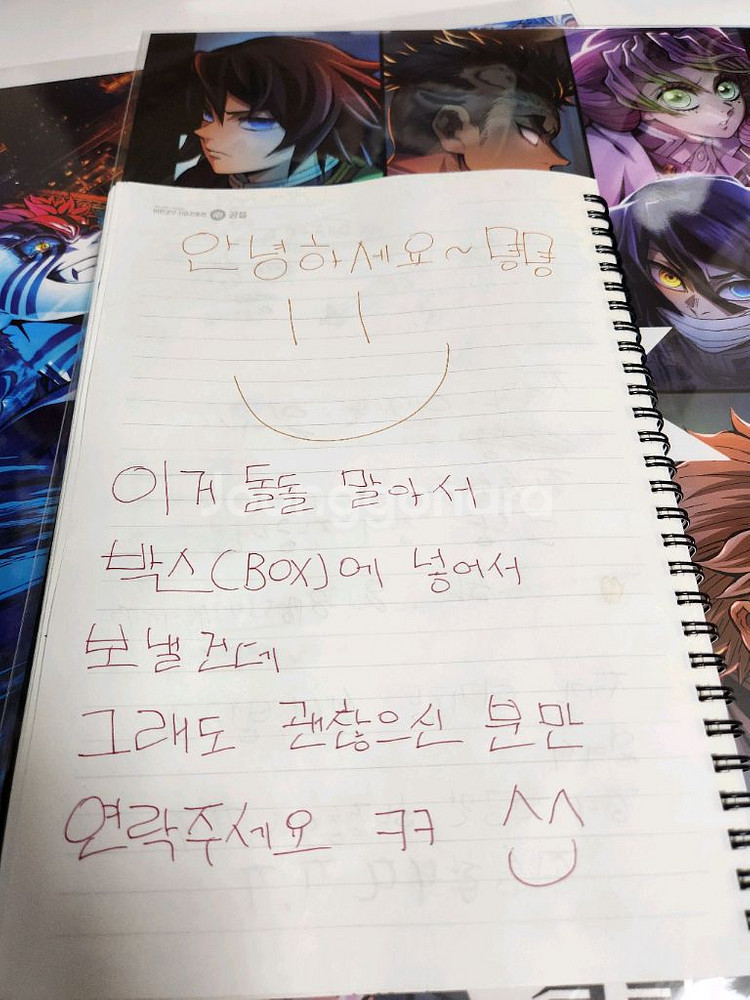 안녕하세요~
이거 돌돌 말아서
박스(BOX)에 넣어서
보낼건데
그래도 괜찮으신 분만
연락주세요 ㅋㅋ ^^
Joonggonara